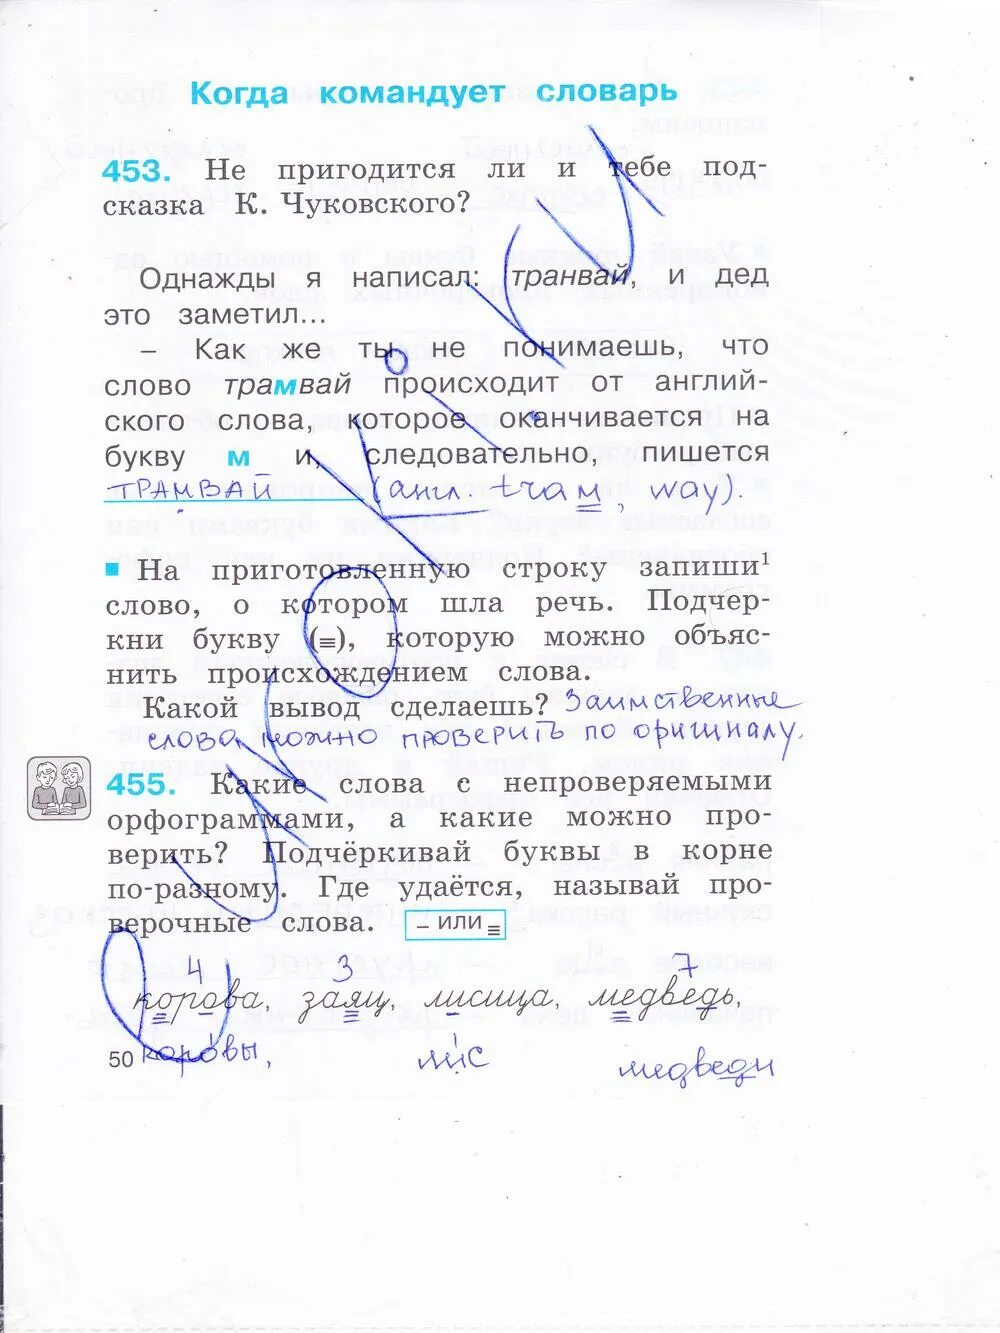 Когда командует словарь
453. Не пригодится ли и тебе под-
сказка К. Чуковского?
Однажды я написал: транвай, и дед
это заметил...
– Как же ты не понимаешь, что
слово трамвай происходит от англий-
ского слова, которое оканчивается на
букву м и, следовательно, пишется
ТРАМВАЙ (англ. tram, way).
На приготовленную строку запиши¹
слово, о котором шла речь. Подчер-
кни букву (=), которую можно объяс-
нить происхождением слова.
Какой вывод сделаешь? Заимственные
слова можно проверить по оригиналу.
455. Какие слова с непроверяемыми
орфограммами, а какие можно про-
верить? Подчёркивай буквы в корне
по-разному. Где удаётся, называй про-
верочные слова. – или =
4 3 7
корова, заяц, лисица, медведь,
50 коро́вы, ли́с медведи